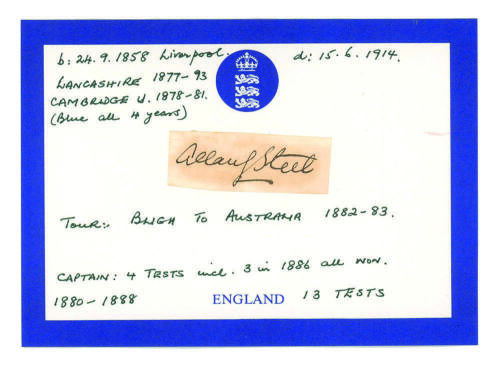 b: 24.9.1858 Liverpool. d: 15.6.1914.
LANCASHIRE 1877-93
CAMBRIDGE U. 1878-81.
(Blue all 4 years)
Allan G Steel
TOUR:. BLIGH TO AUSTRALIA 1882-83.
CAPTAIN: 4 TESTS incl. 3 in 1886 all WON.
1880-1888 ENGLAND 13 TESTS